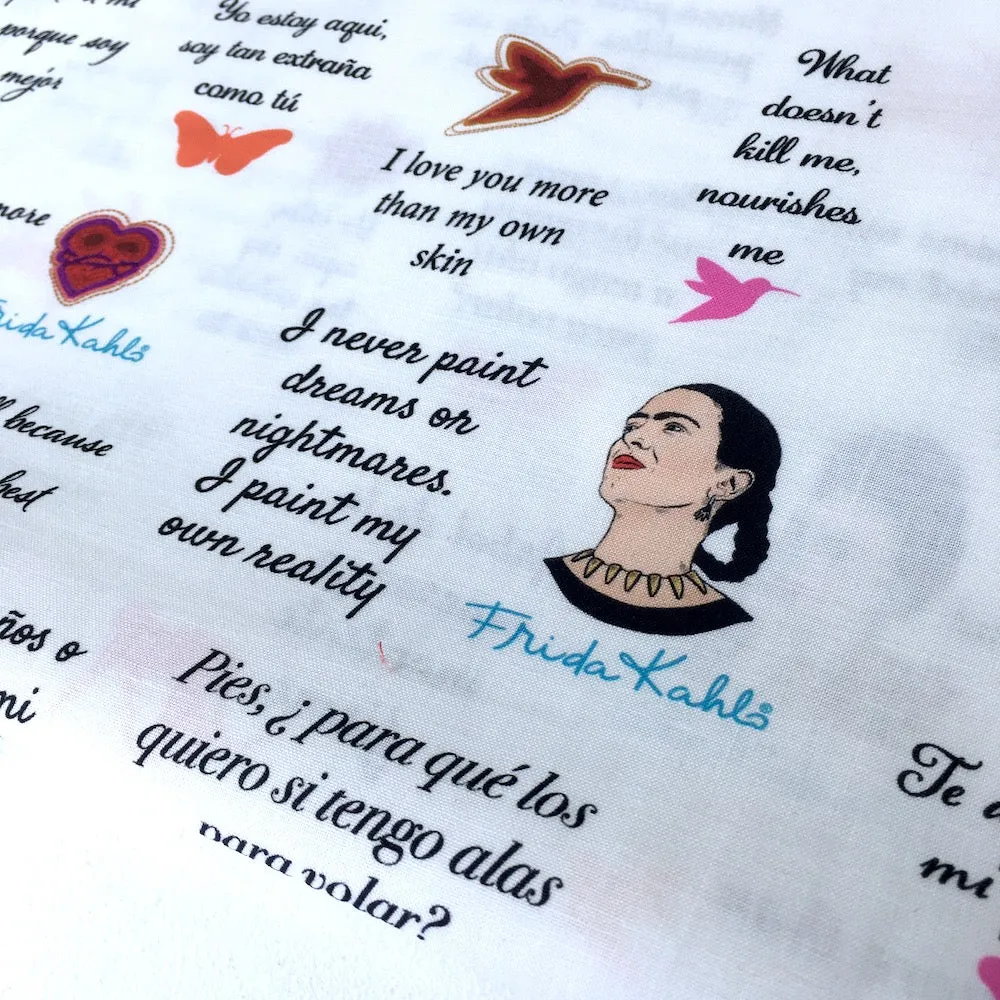 mi
porque soy
mejor
Yo estoy aqui,
soy tan extraña
como tú
What
doesn't
kill me,
nourishes
me
I love you more
than my own
skin
more
Frida Kahlo
I never paint
dreams or
nightmares.
I paint my
own reality
because
best
Frida Kahlo
ños o
mi
Pies, ¿para qué los
quiero si tengo alas
para volar?
Te
mi